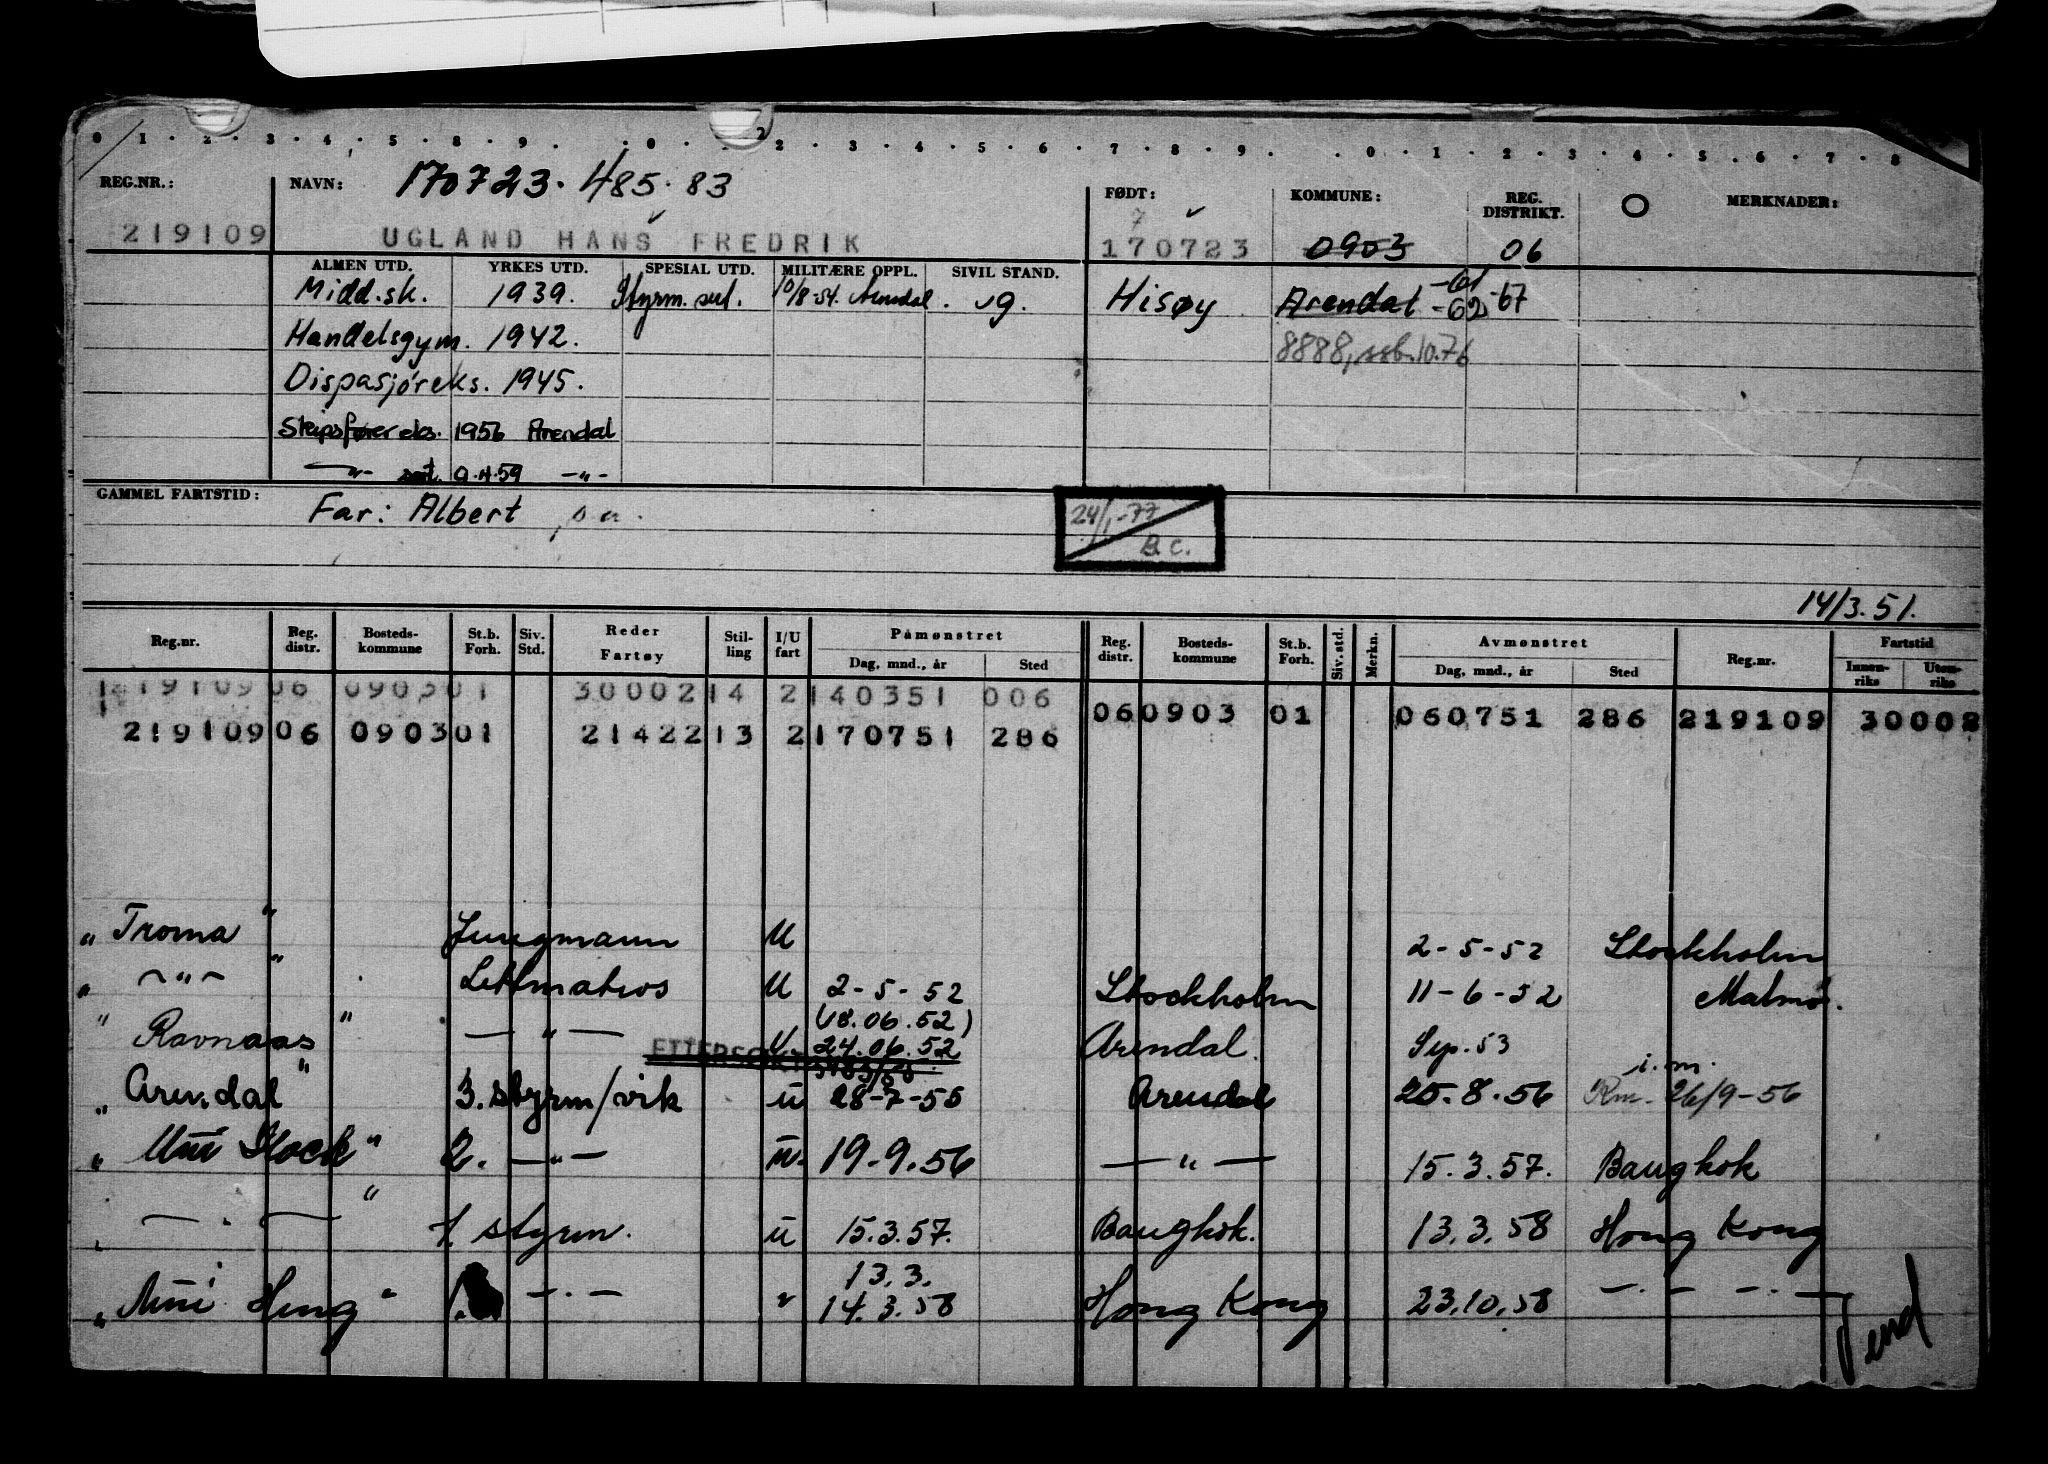 0 1 2 3 4 5 8 9 0 2 2 3 4 5 6 7 8 9 0 1 2 3 4 5 6 7 8
REG.NR.: NAVN: 170723.485.83 FØDT: KOMMUNE: REG. DISTRIKT. O MERKNADER:
7
219109 UGLAND HANS FREDRIK 170723 0903 06
ALMEN UTD. YRKES UTD. SPESIAL UTD. MILITÆRE OPPL. SIVIL STAND.
Midd.sk. 1939. Styrm. sert. 10/8-54. Arendal. ug. Hisøy Arendal -61 -62-67
Handelsgym. 1942. 8888, ssb.10.76
Dispasjøreks. 1945.
Skipsførereks. 1956 Arendal
-"- sert. 9.4.59 -"-
GAMMEL FARTSTID: Far: Albert, s.a.
24/1-77
B.C.
14/3.51.
Reg.nr. Reg. distr. Bosteds-kommune St.b. Forh. Siv. Std. Reder Fartøy Stil-ling I/U fart Påmønstret Dag, mnd., år Sted Reg. distr. Bosteds-kommune St.b. Forh. Siv. std. Merkn. Avmønstret Dag, mnd., år Sted Reg.nr. Fartstid Innen-riks Uten-riks
219109 06 0903 01 30002 14 2 140351 006 06 0903 01 060751 286 219109 30002
219109 06 0903 01 21422 13 2 170751 286
" Troma " Jungmann U 2-5-52 Stockholm
" -"- " Lettmatros U 2-5-52 Stockholm 11-6-52 Malmø.
(18.06.52)
" Ravnaas " -"- U 24.06.52 Arendal. Sep. 53
ETTERSØKT
i.m.
" Arendal " 3. styrm/vik u 28-7-56 Arendal 25.8.56 Rm. 26/9-56
" Hock " 2. -"- u. 19-9.56 -"- 15.3.57. Bangkok
" -"- " 1. styrm. u 15.3.57. Bangkok. 13.3.58 Hong Kong
13.3.
" Heng " 1. -"- " 14.3.58 Hong Kong 23.10.58 -"-
Vend